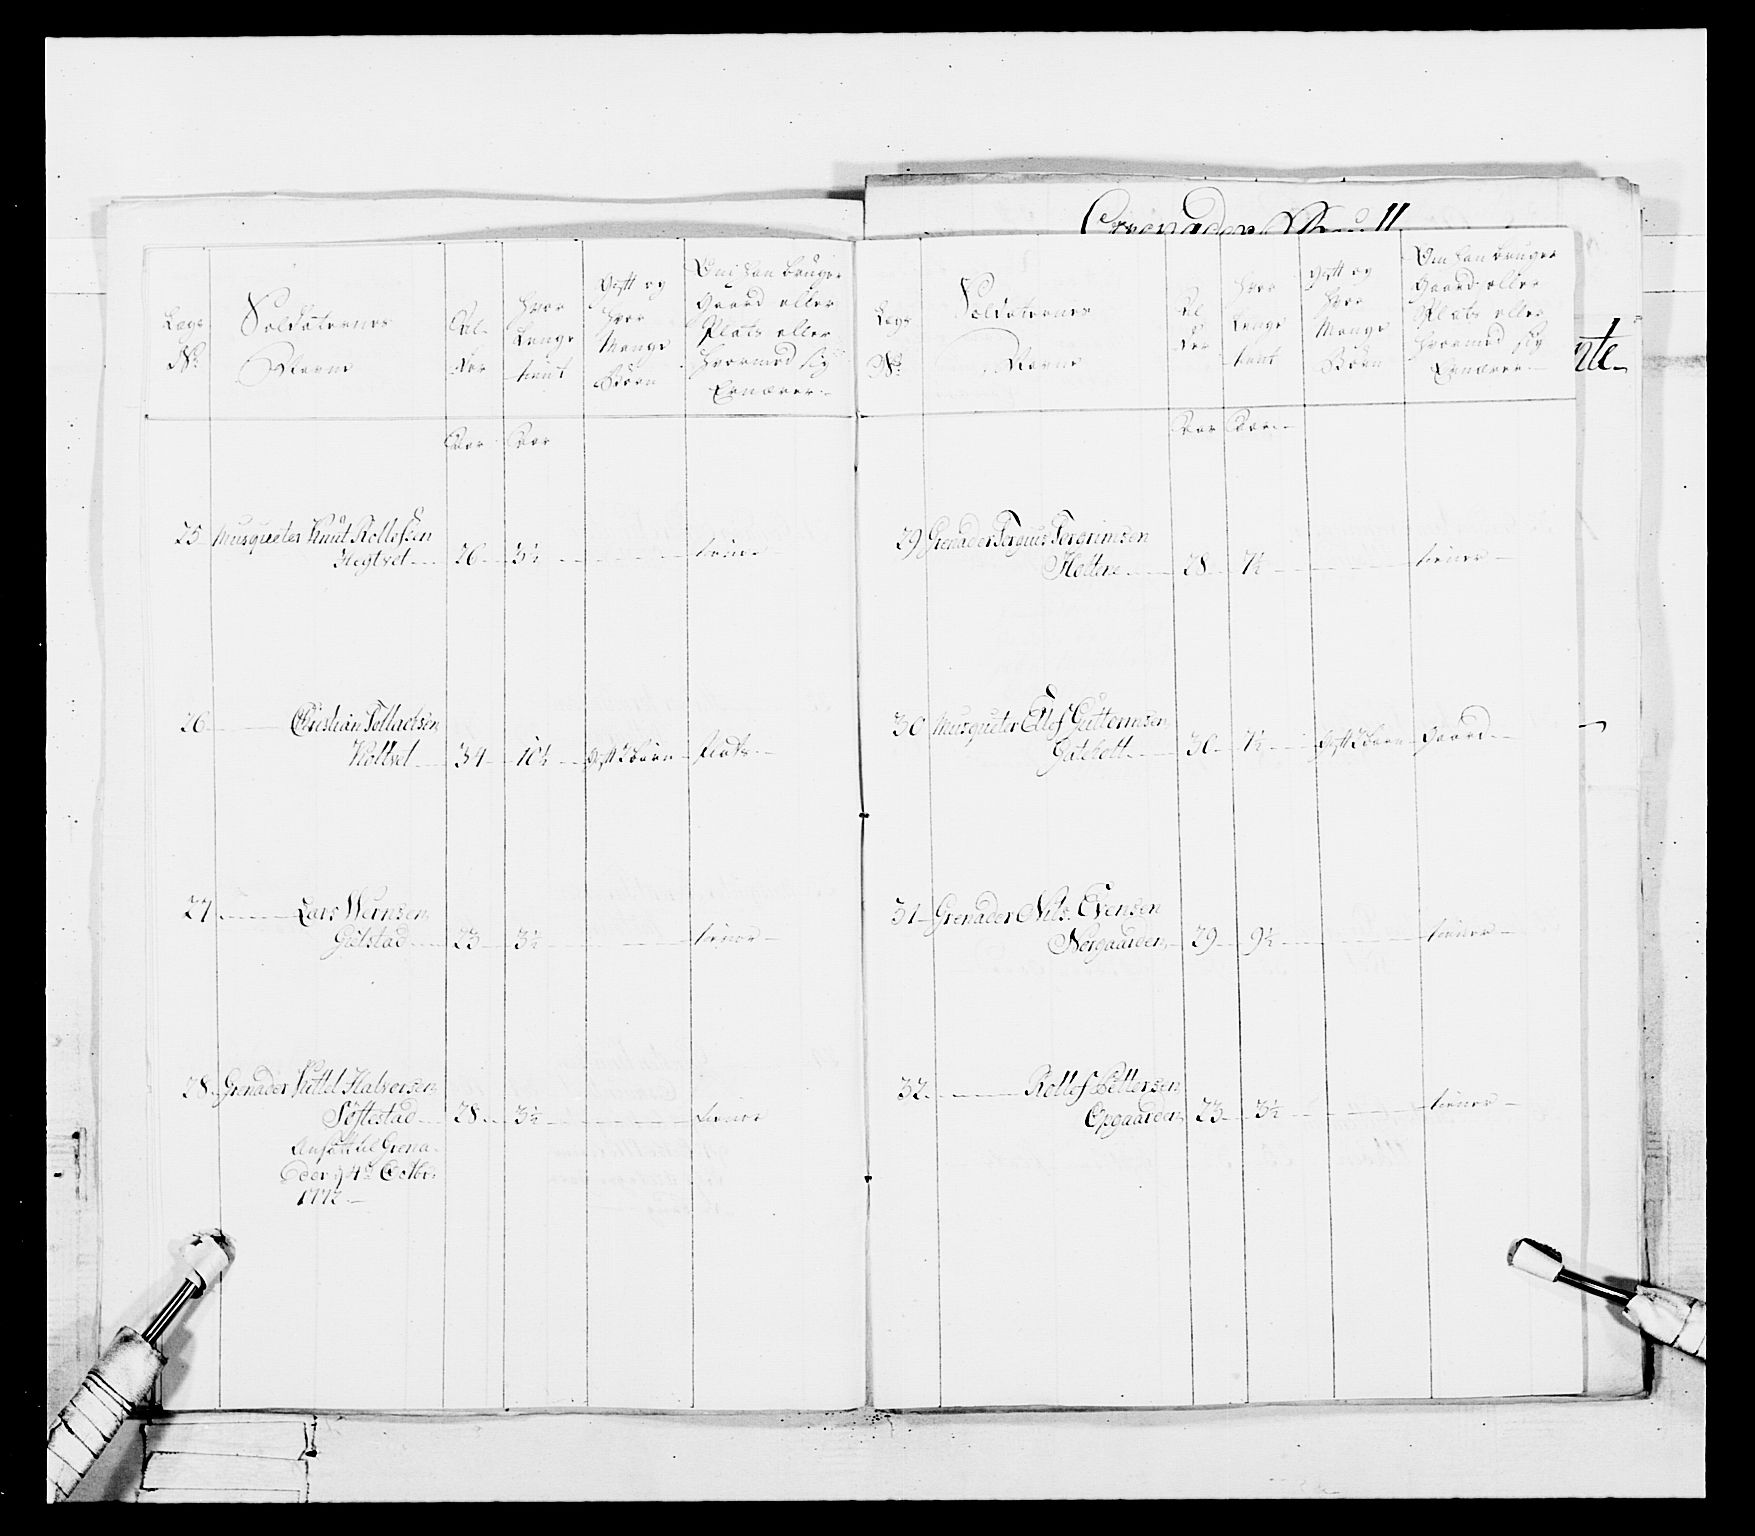 Grenader
nte
Legs
No.
Soldaternes
Navne
Al-
der
Hvor
Lenge
tient
Gift og
Hvor
Mange
Børn
Om han bruger
Gaard eller
Plats eller
Hvormed sig
Ernærer
Aar Aar
25 Musqueter Knut Rollefsen
Hegtvet 26 3½ tiener
26 Christian Tollachsen
Holtvet 34 10½ Gift 2 børn Plads
27 Lars Wernsen
Gulstad 23 3½ tiener
28 Grenader Kittel Halvorsen
Søftestad 28 3½ tiener
Ansatt til Grena-
der d 4d Octbr
1772
Legs
No.
Soldaternes
Navne
Al-
der
Hvor
Lenge
tient
Gift og
Hvor
Mange
Børn
Om han bruger
Gaard eller
Plats eller
Hvormed sig
Ernærer
Aar Aar
29 Grenader Torgius Torgrimsen
Holtene 28 7½ tiener
30 Musqueter Ellef Guttormsen
30 7½ Gift 2 børn Gaard
31 Grenader Nils Evensen
Norgaarden 29 9½ tiener
32 Rollef Pettersen
Opgaarden 23 3½ tiener